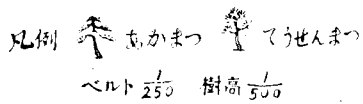 凡例 あかまつ てうせんまつ
ベルト 1/250 樹高 1/500